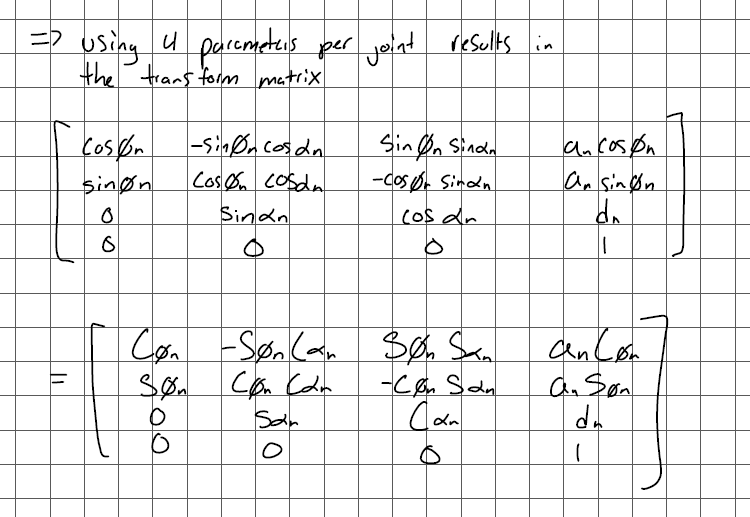 => using 4 parameters per joint results in
the transform matrix
[ cosØn -sinØn cosαn sinØn sinαn an cosØn
sinØn cosØn cosαn -cosØn sinαn an sinØn
0 sinαn cosαn dn
0 0 0 1 ]
= [ CØn -SØn Cαn SØn Sαn an CØn
SØn CØn Cαn -CØn Sαn an SØn
0 Sαn Cαn dn
0 0 0 1 ]